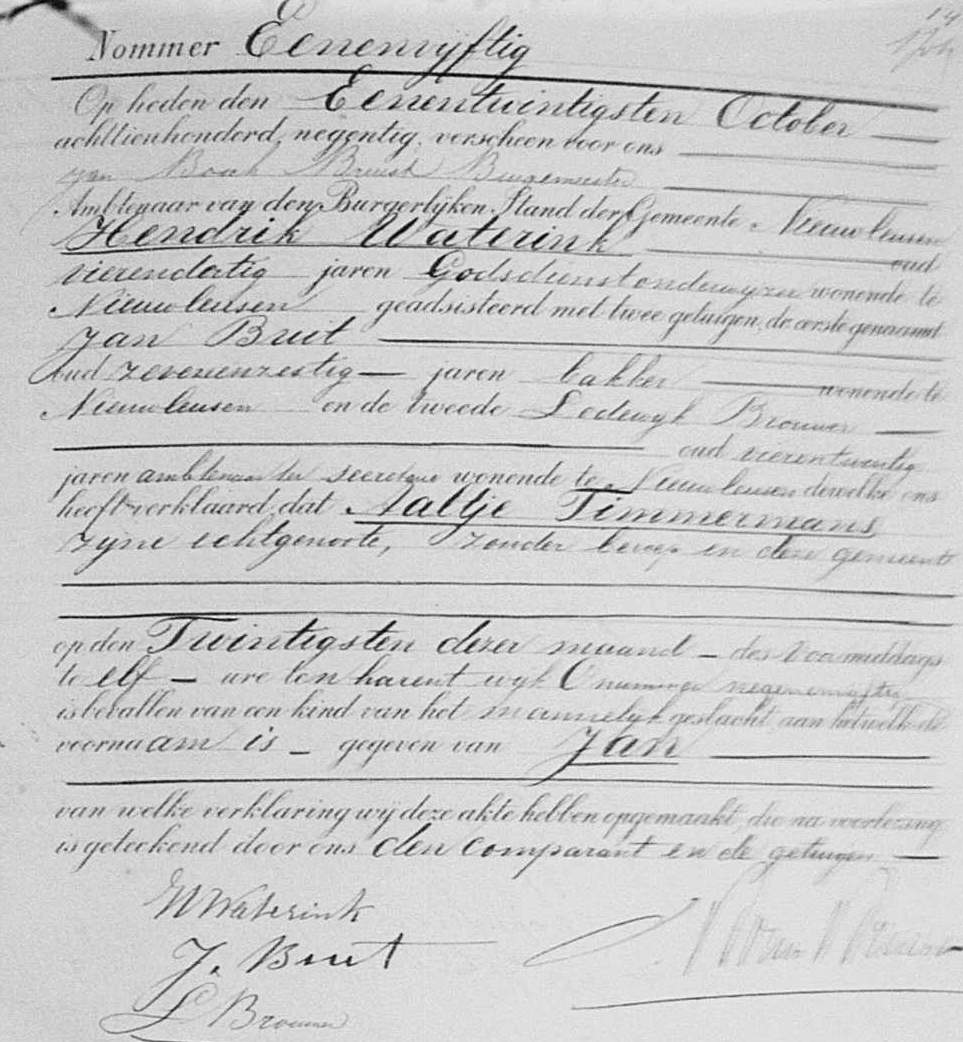 Nommer Eenenvyftig
Op heden den Eenentwintigsten October
achttienhonderd negentig, verscheen voor ons
Jan Bruist Burgemeester
Ambtenaar van den Burgerlijken Stand der Gemeente Nieuwleusen
Hendrik Waterink oud
vierendertig jaren Godsdienstonderwyzer wonende te
Nieuwleusen geadsisteerd met twee getuigen, de eerste genaamd
Jan Bruit
oud zevenenzestig jaren bakker wonende te
Nieuwleusen en de tweede Lodewyk Brouwer
oud vierentwintig
jaren ambtenaar ter secretarie wonende te Nieuwleusen dewelke ons
heeft verklaard, dat Aaltje Timmermans
zyne echtgenoote, zonder beroep in deze gemeente
op den Twintigsten dezer maand des voormiddags
te elf ure ten harent wyk C nummer negenenvyftig
is bevallen van een kind van het mannelyk geslacht, aan hetwelk de
voornaam is gegeven van Jan
van welke verklaring wij deze akte hebben opgemaakt, die na voorlezing
is geteekend door ons den comparant en de getuigen
H Waterink
J. Bruit
L Brouwer